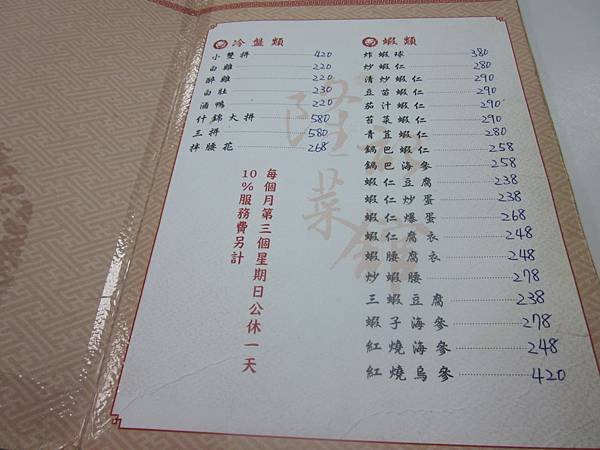 冷盤類
小雙拼 420
白雞 220
醉雞 220
白肚 230
滷鴨 220
什錦大拼 580
三拼 580
拌腰花 268
每個月第三個星期日公休一天
10%服務費另計
蝦類
炸蝦球 380
炒蝦仁 280
清炒蝦仁 290
豆苗蝦仁 290
茄汁蝦仁 290
苔菜蝦仁 290
青豆蝦仁 280
鍋巴蝦仁 258
鍋巴海參 258
蝦仁豆腐 238
蝦仁炒蛋 238
蝦仁爆蛋 268
蝦仁腐衣 248
蝦腰腐衣 248
炒蝦腰 278
三蝦豆腐 238
蝦子海參 278
紅燒海參 248
紅燒烏參 420
隆
菜